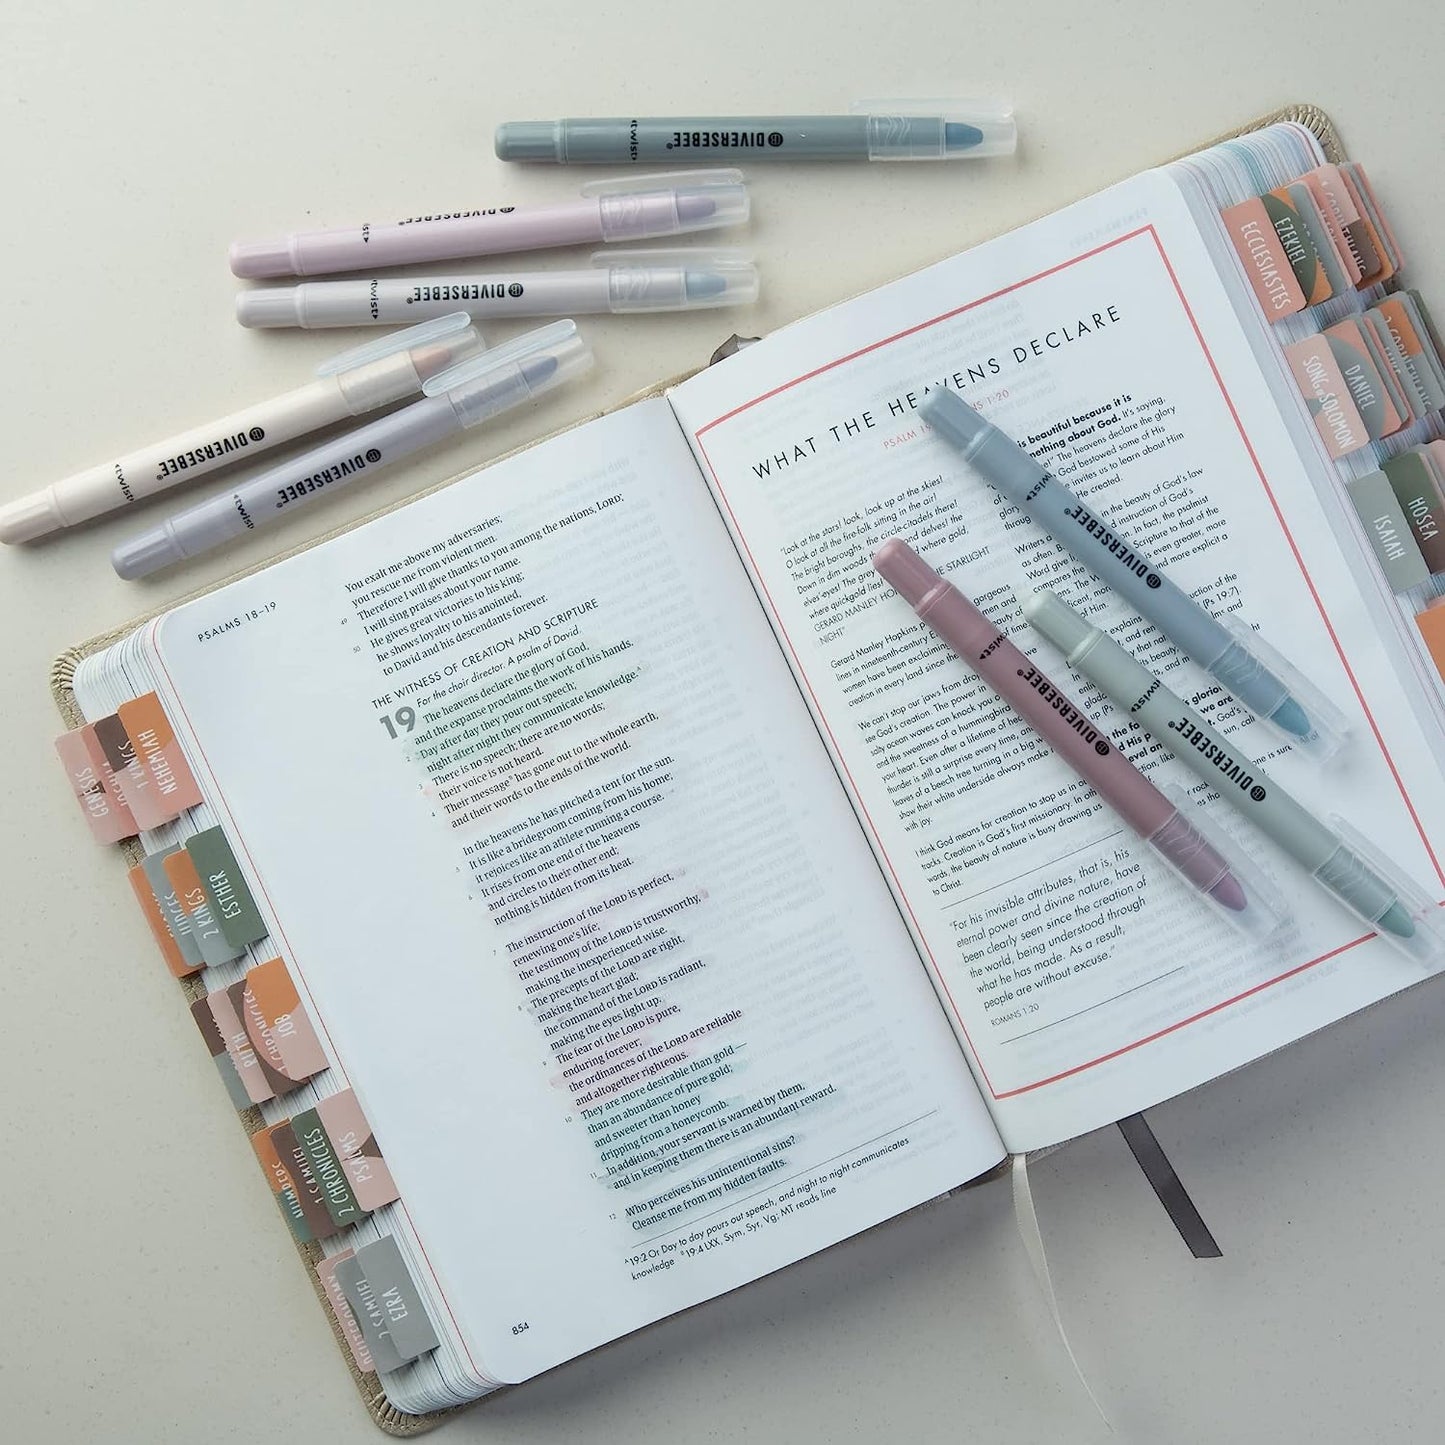 twist
DIVERSEBEE®
twist
DIVERSEBEE®
twist
DIVERSEBEE®
twist
DIVERSEBEE®
twist
DIVERSEBEE®
PSALMS 18–19
You exalt me above my adversaries;
you rescue me from violent men.
49 Therefore I will give thanks to you among the nations, LORD;
I will sing praises about your name.
50 He gives great victories to his king;
he shows loyalty to his anointed,
to David and his descendants forever.
THE WITNESS OF CREATION AND SCRIPTURE
For the choir director. A psalm of David.
19 The heavens declare the glory of God,
and the expanse proclaims the work of his hands.
2 Day after day they pour out speech;
night after night they communicate knowledge.A
3 There is no speech; there are no words;
their voice is not heard.
4 Their messageB has gone out to the whole earth,
and their words to the ends of the world.
In the heavens he has pitched a tent for the sun.
5 It is like a bridegroom coming from his home;
it rejoices like an athlete running a course.
6 It rises from one end of the heavens
and circles to their other end;
nothing is hidden from its heat.
7 The instruction of the LORD is perfect,
renewing one's life;
the testimony of the LORD is trustworthy,
making the inexperienced wise.
8 The precepts of the LORD are right,
making the heart glad;
the command of the LORD is radiant,
making the eyes light up.
9 The fear of the LORD is pure,
enduring forever;
the ordinances of the LORD are reliable
and altogether righteous.
10 They are more desirable than gold—
than an abundance of pure gold;
and sweeter than honey
dripping from a honeycomb.
11 In addition, your servant is warned by them,
and in keeping them there is an abundant reward.
12 Who perceives his unintentional sins?
Cleanse me from my hidden faults.
A 19:2 Or Day to day pours out speech, and night to night communicates
knowledge B 19:4 LXX, Sym, Syr, Vg; MT reads line
854
WHAT THE HEAVENS DECLARE
PSALM 1:20
is beautiful because it is
about God. It's saying,
The heavens declare the glory
God bestowed some of His
invites us to learn about Him
He created.
"Look at the stars! look, look up at the skies!
O look at all the fire-folk sitting in the air!
The bright boroughs, the circle-citadels there!
Down in dim woods the
elves'-eyes! The grey
where quickgold lies!
GERARD MANLEY THE STARLIGHT
NIGHT"
Gerard Manley Hopkins
lines in nineteenth-century
women have been exclaiming
creation in every land since the
We can't stop our jaws from
see God's creation. The power
salty ocean waves can knock you
and the sweetness of a hummingbird
your heart. Even after a lifetime of
thunder is still a surprise every time,
leaves of a beech tree turning in a big
show their white underside always make
with joy.
I think God means for creation to stop us in our
tracks. Creation is God's first missionary. In
words, the beauty of nature is busy drawing us
to Christ.
Writers
as often
Word give
compares the
in the beauty of God's law
and instruction of God's
In fact, the psalmist
Scripture to that of the
is even greater, more
and more explicit a
of the
[Ps 19:7].
"For his invisible attributes, that is, his
eternal power and divine nature, have
been clearly seen since the creation of
the world, being understood through
what he has made. As a result,
people are without excuse."
ROMANS 1:20
twist
DIVERSEBEE®
twist
DIVERSEBEE®
twist
DIVERSEBEE®
GENESIS
JOSHUA
1 KINGS
NEHEMIAH
JUDGES
2 KINGS
ESTHER
RUTH
JOB
1 SAMUEL
2 CHRONICLES
PSALMS
DEUTERONOMY
2 SAMUEL
EZRA
ECCLESIASTES
EZEKIEL
SONG SOLOMON
DANIEL
ISAIAH
HOSEA